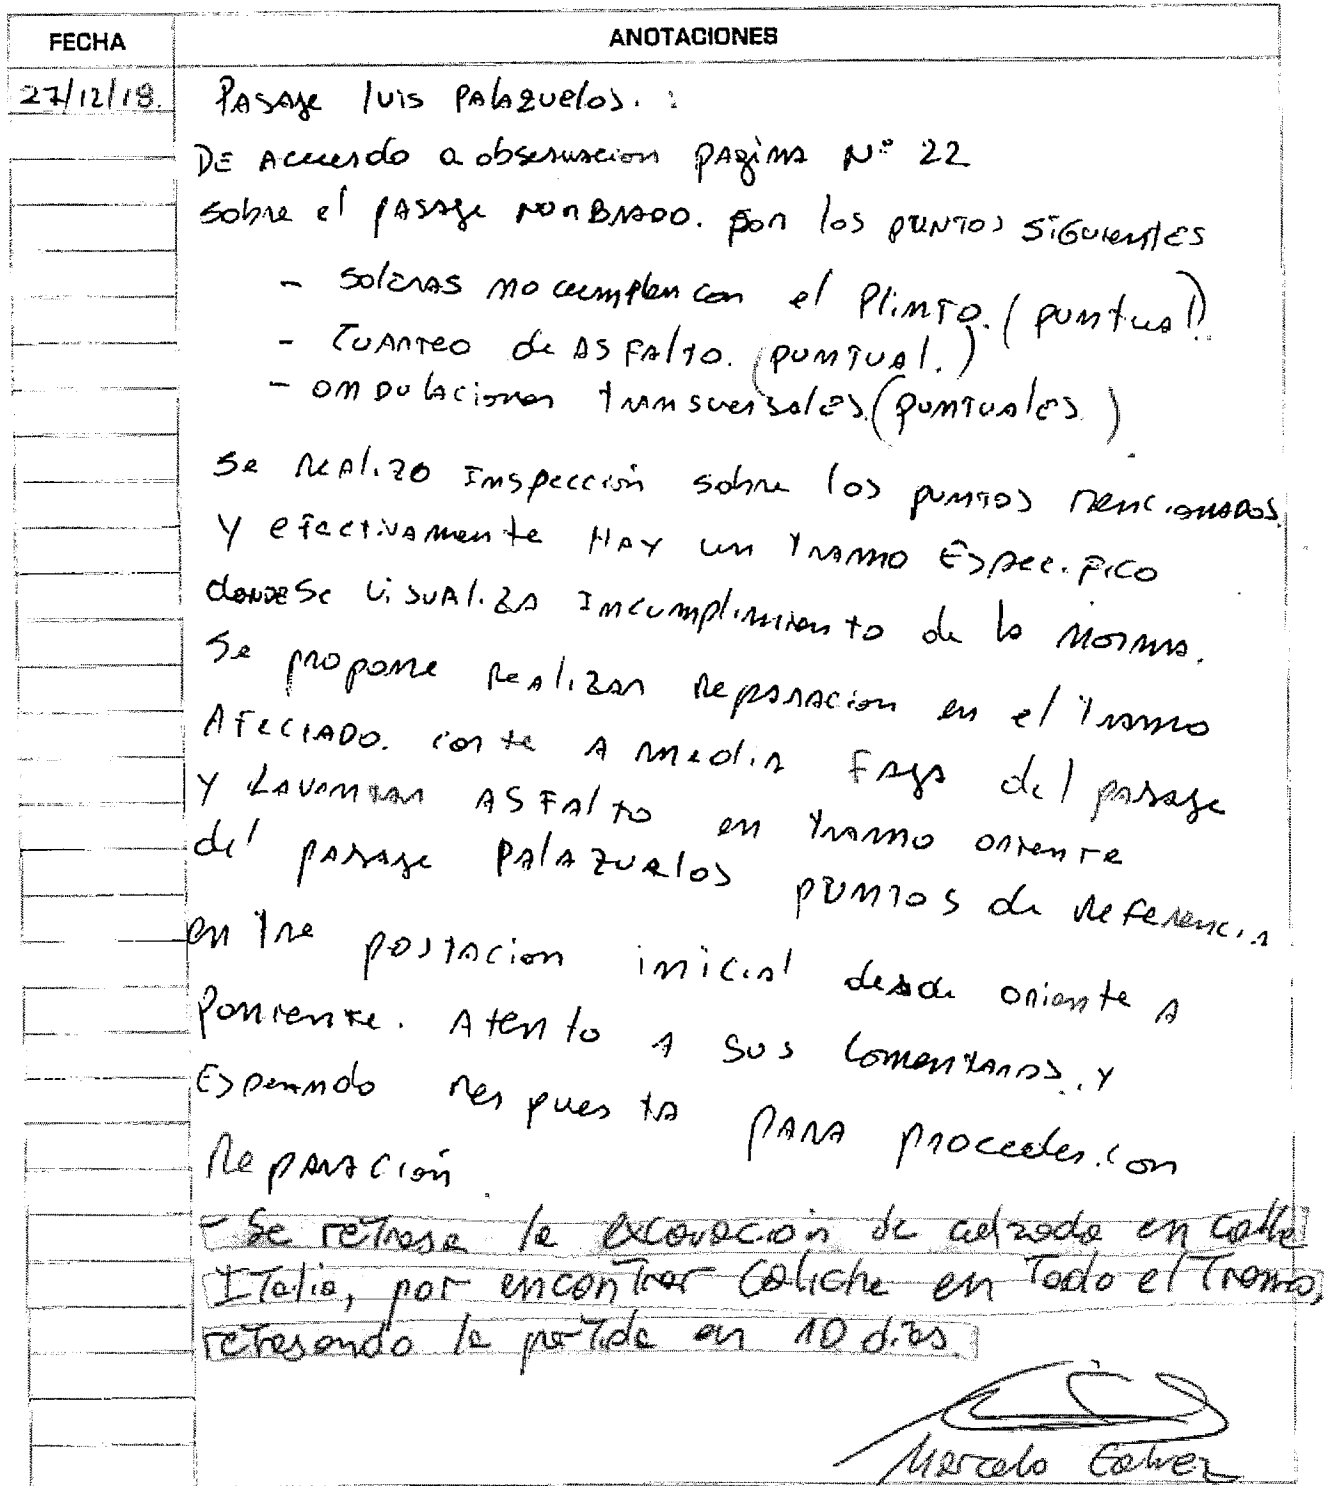 FECHA ANOTACIONES
27/12/18. PASAJE luis PALAZUELOS. :
DE Acuerdo a observacion pagina N° 22
sobre el pasaje NOMBRADO. por los puntos SIGUIENTES
- soleras no cumplen con el Plinto. (puntual).
- CUARTEO de ASFALTO. (PUNTUAL.)
- ONDULACIONES transversales (puntuales)
Se realizo Inspección sobre los puntos mencionados.
Y efectivamente HAY un tramo Especifico
donde se visualiza Incumplimiento de la norma.
Se propone Realizar Reparacion en el tramo
AFECTADO. corte A media Faja del pasaje
Y Levantar ASFALTO en tramo oriente
del pasaje PALAZUELOS puntos de Referencia
entre postacion inicial desde oriente A
Poniente. Atento A sus Comentarios. Y
Esperando respuesta PARA proceder con
Reparación.
- Se retrasa la excavación de calzada en calle
Italia, por encontrar Caliche en Todo el Tramo,
retrasando la partida en 10 días.
Marcelo Galvez